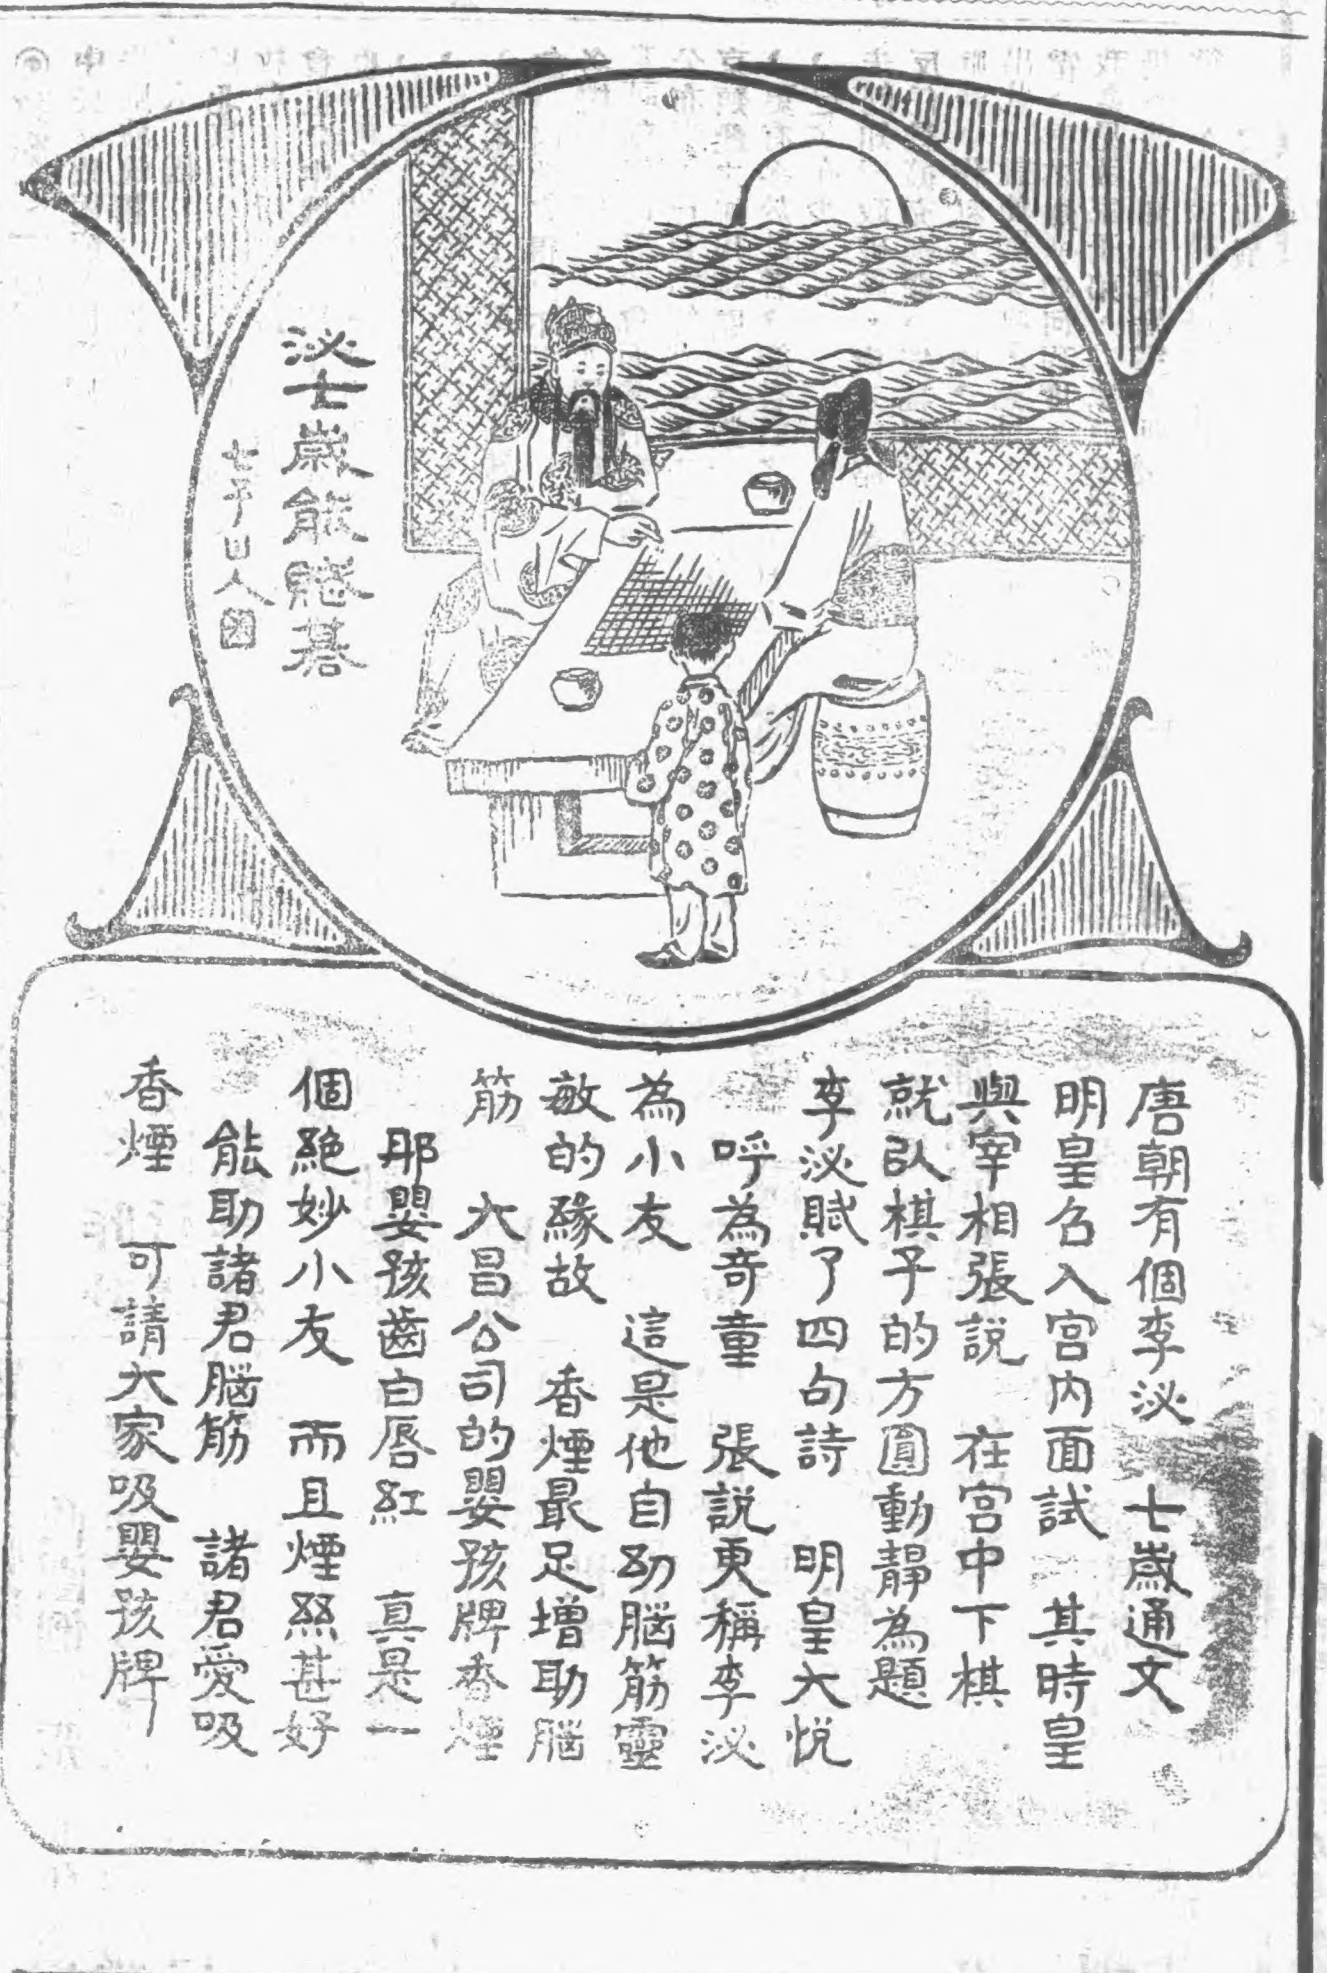 泌七歲能賦碁
唐朝有個李泌　七歲通文
明皇召入宮內面試　其時皇
與宰相張説　在宮中下棋
就以棋子的方圓動靜為題
李泌賦了四句詩　明皇大悅
呼為奇童　張説更稱李泌
為小友　這是他自幼腦筋靈
敏的緣故　香煙最足增助腦
筋　大昌公司的嬰孩牌香煙
那嬰孩齒白唇紅　真是一
個絕妙小友　而且煙絲甚好
能助諸君腦筋　諸君愛吸
香煙　可請大家吸嬰孩牌